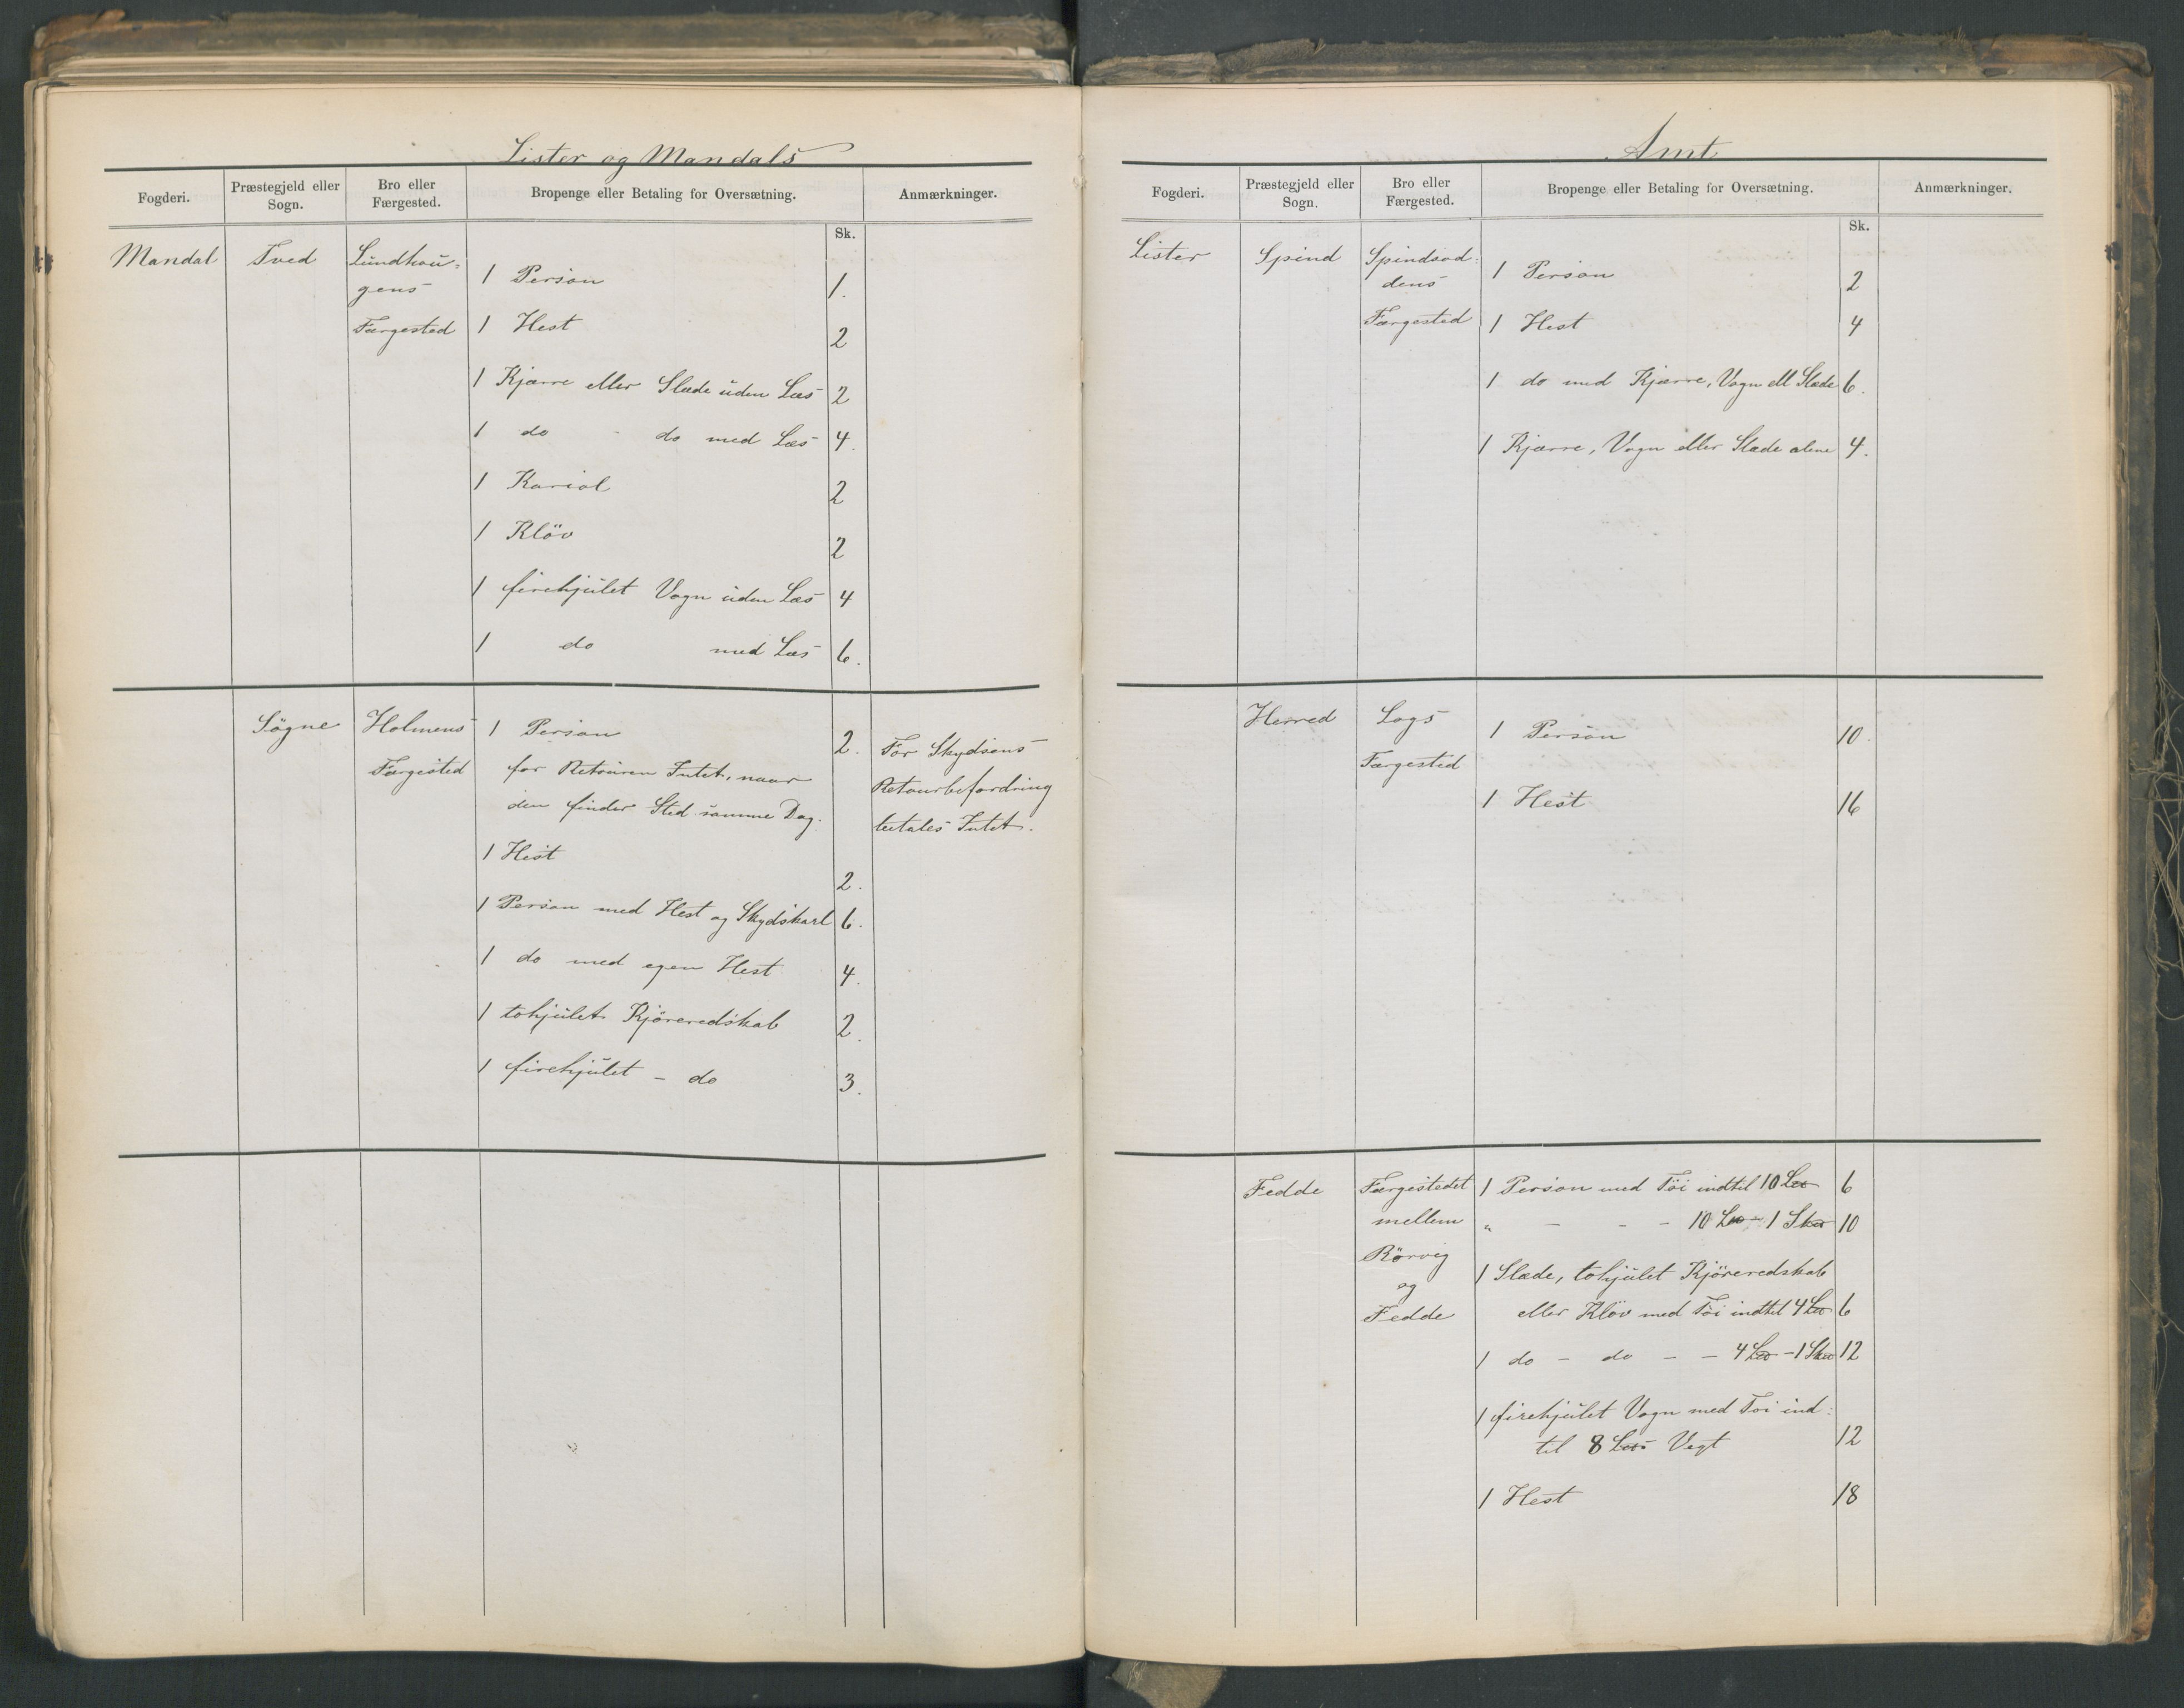 Lister og Mandals
Fogderi. Præstegjeld eller Sogn. Bro eller Færgested. Bropenge eller Betaling for Oversætning. Anmærkninger.
Sk.
Mandal Tved Lundhou-
gens 1 Person 1.
Færgested 1 Hest 2
1 Kjærre eller Slæde uden Læs 2
1 do - do med Læs 4.
1 Kariol 2
1 Klöv 2
1 firehjulet Vogn uden Læs 4
1 do med Læs 6.
Sögne Holmens 1 Person 2. For Skydsens
Færgested for Retouren Intet, naar Retourbefordring
den finder Sted samme Dag. betales Intet.
1 Hest 2.
1 Person med Hest og Skydskarl 6.
1 do med egen Hest 4.
1 tohjulet Kjöreredskab 2.
1 firehjulet - do 3.
Amt
Fogderi. Præstegjeld eller Sogn. Bro eller Færgested. Bropenge eller Betaling for Oversætning. Anmærkninger.
Sk.
Lister Spind Spindsod-
dens 1 Person 2
Færgested 1 Hest 4
1 do med Kjærre, Vogn ell Slæde 6.
1 Kjærre, Vogn eller Slæde alene 4.
Herred Logs 1 Person 10.
Færgested
1 Hest 16
Fedde Færgestedet 1 Person med Töi indtil 10 6
mellem " - - - 10 - 1 10
Rörvig
og 1 Slæde, tohjulet Kjöreredskab
Fedde eller Klöv med Töi indtil 4 6
1 do - do - - 4 - 1 12
1 firehjulet Vogn med Töi ind-
til 8 Vegt 12
1 Hest 18